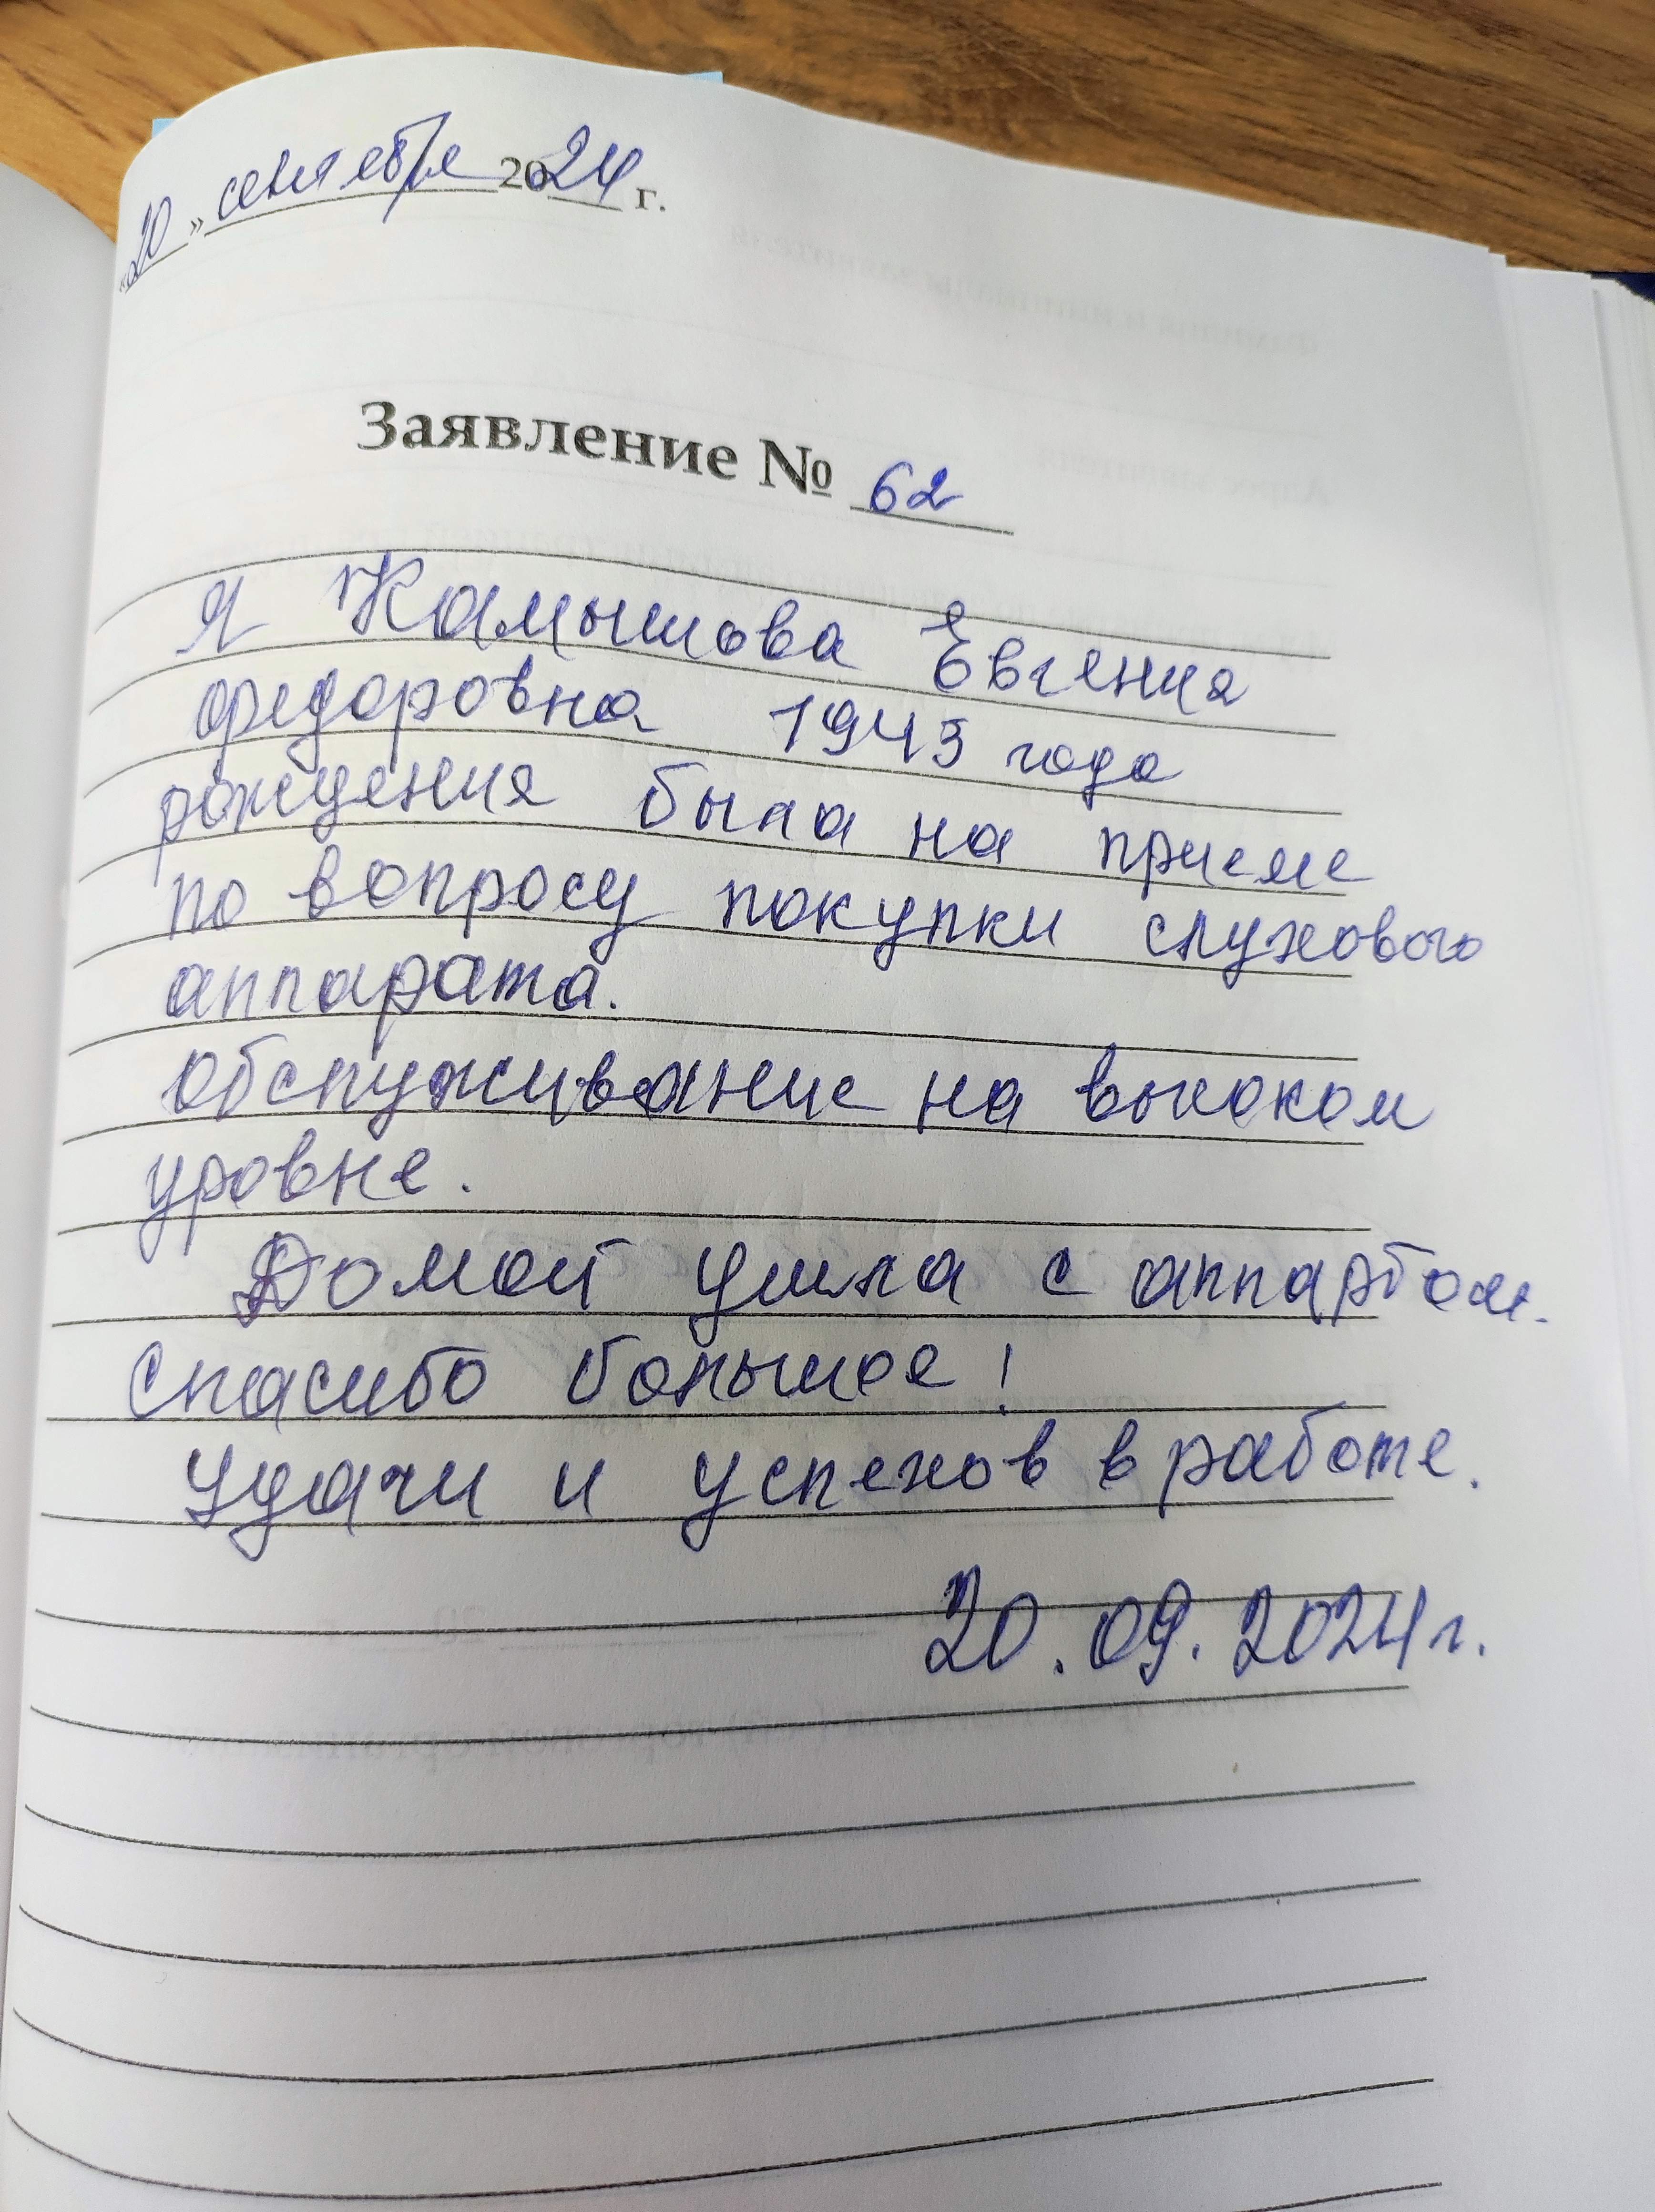 «20» сентября 2024 г.
Заявление № 62
Я Камышова Евгения
федоровна 1943 года
рождения была на приеме
по вопросу покупки слухового
аппарата.
обслуживание на высоком
уровне.
Домой ушла с аппарбом.
Спасибо большое!
Удачи и успехов в работе.
20.09.2024г.